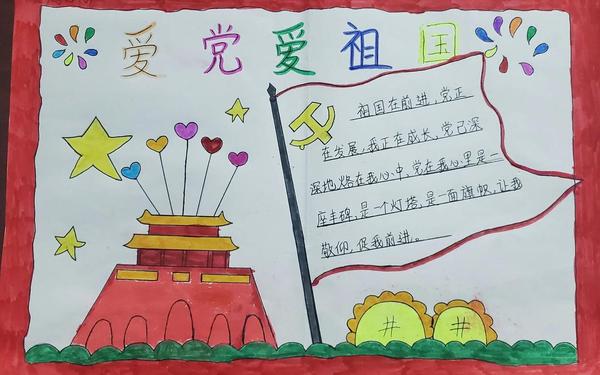 爱党爱祖国
祖国在前进,党正
在发展,我正在成长,党已深
深地烙在我心中,党在我心里是一
座丰碑,是一个灯塔,是一面旗帜,让我
敬仰,促我前进。
井 井